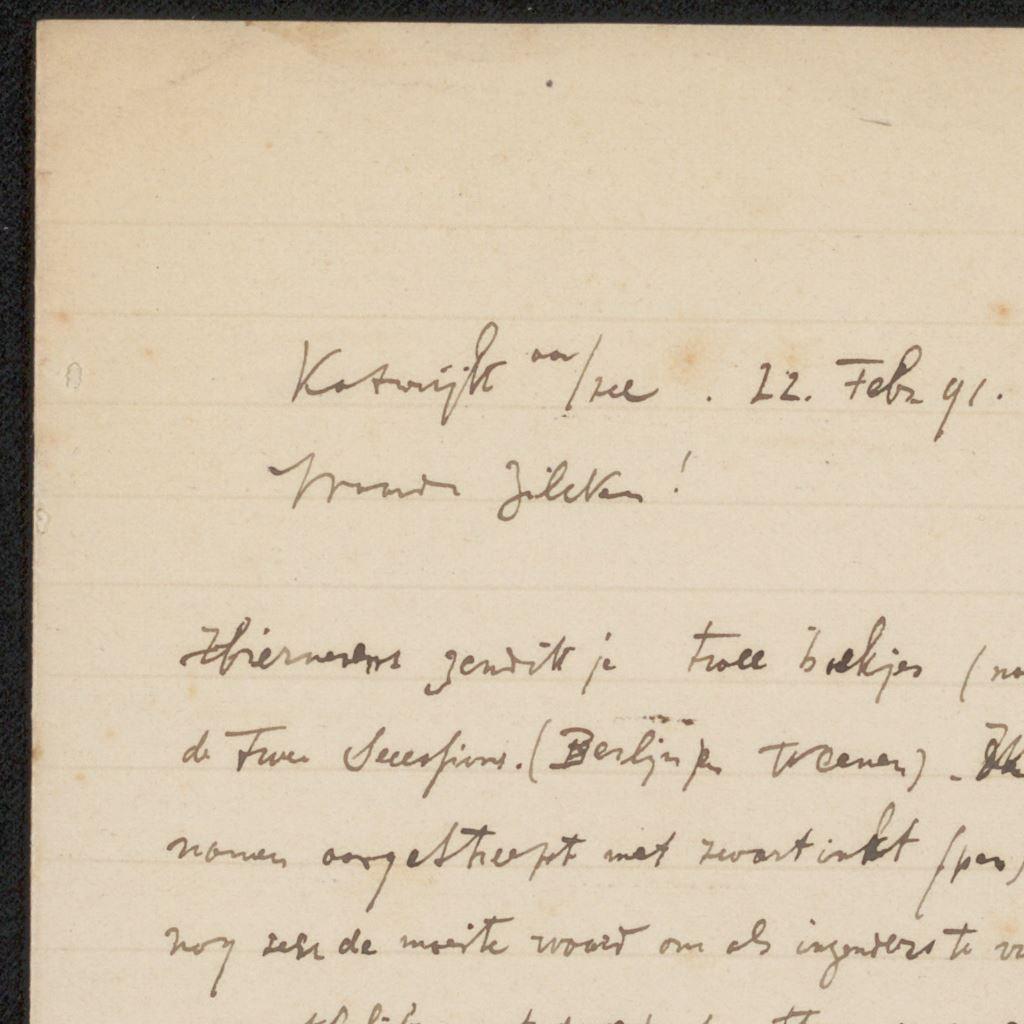 Katwijk aan/zee . 22. Febr 91.
Waarde Zilcken!
Hiernevens zend ik je twee boekjes (
de Twee Secessions. (Berlijn en Weenen). Ik
namen aangestreept met zwart inkt (pen)
nog zeer de moeite waard om als inzenders te